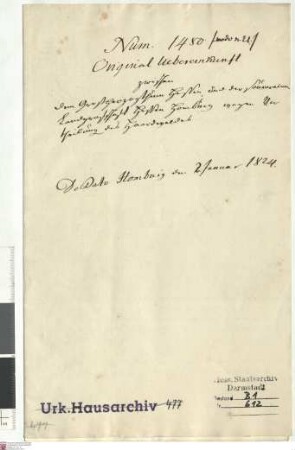 Num. 1480 /modo n. 22/
Original Uebereinkunft
zwischen
dem Großherzogthum Hessen und der souverainen
Landgrafschaft Hessen Homburg wegen Ver
theilung des Hardtwaldes
De Dato Homburg den 2 Januar 1824.
Hess. Staatsarchiv
Darmstadt
B 1
Nr. 612
Urk. Hausarchiv 477